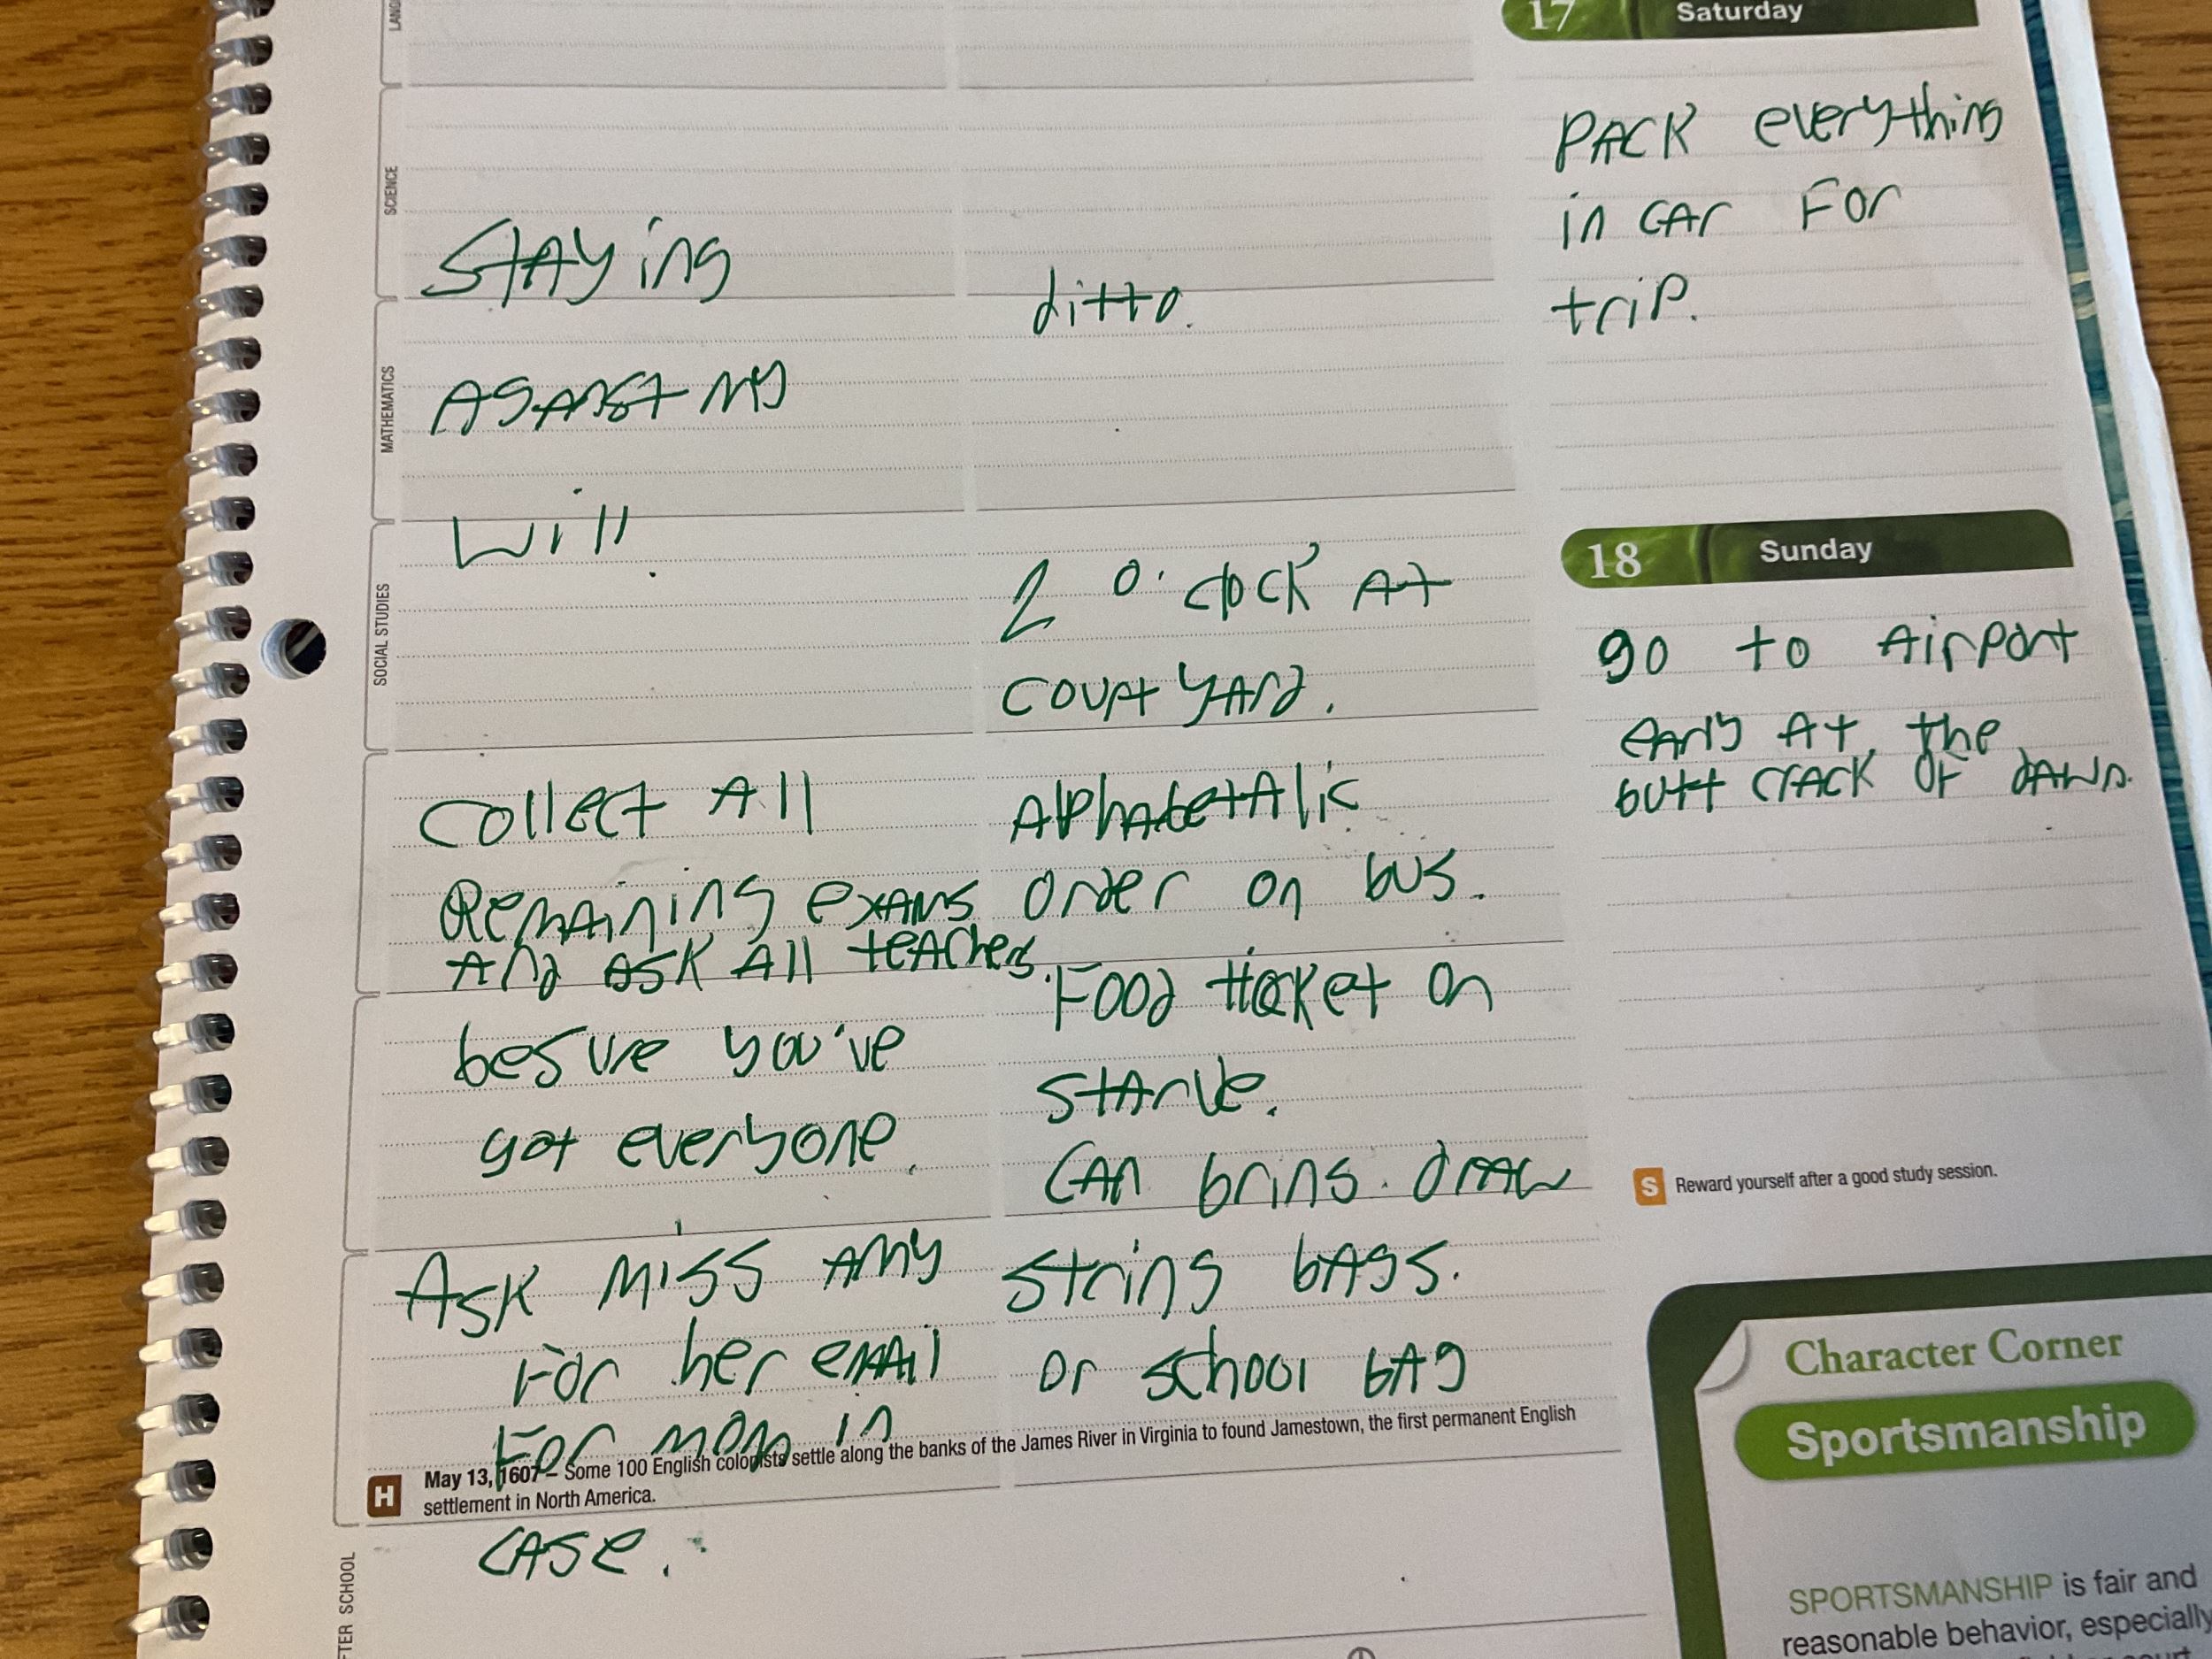 LANG
SCIENCE
STAYing
AgANST My
Will.
MATHEMATICS
SOCIAL STUDIES
Collect All
Remaining exAms
And ASK All teAchers.
besure you've
got everyone.
ASK Miss Amy
For her emAil
For mom in
cAse.
ditto.
2 O'clock At
courtyArd.
AlphAbetAlic
Order on bus.
Food ticket on
stArve.
CAn bring drAw
string bAgs.
or school bAg
H May 13, 1607 – Some 100 English colonists settle along the banks of the James River in Virginia to found Jamestown, the first permanent English
settlement in North America.
FTER SCHOOL
17 Saturday
PACK everything
in cAr For
trip.
18 Sunday
go to Airport
eArly At the
butt crAck of dAwn.
S Reward yourself after a good study session.
Character Corner
Sportsmanship
SPORTSMANSHIP is fair and
reasonable behavior, especially